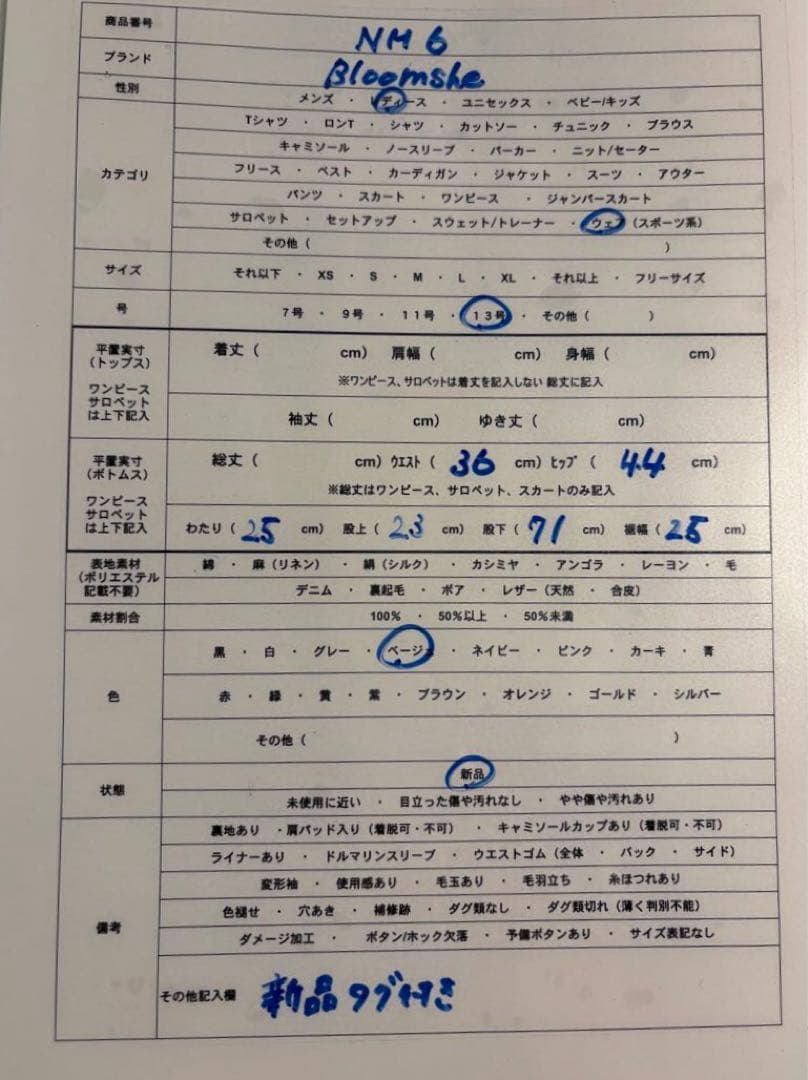 商品番号 NM6
ブランド Bloomshe
性別 メンズ ・ レディース ・ ユニセックス ・ ベビー/キッズ
カテゴリ
Tシャツ ・ ロンT ・ シャツ ・ カットソー ・ チュニック ・ ブラウス
キャミソール ・ ノースリーブ ・ パーカー ・ ニット/セーター
フリース ・ ベスト ・ カーディガン ・ ジャケット ・ スーツ ・ アウター
パンツ ・ スカート ・ ワンピース ・ ジャンパースカート
サロペット ・ セットアップ ・ スウェット/トレーナー ・ ウェア (スポーツ系)
その他 ( )
サイズ それ以下 ・ XS ・ S ・ M ・ L ・ XL ・ それ以上 ・ フリーサイズ
号 7号 ・ 9号 ・ 11号 ・ 13号 ・ その他 ( )
平置実寸
(トップス)
ワンピース
サロペット
は上下記入
着丈 ( cm) 肩幅 ( cm) 身幅 ( cm)
※ワンピース、サロペットは着丈を記入しない 総丈に記入
袖丈 ( cm) ゆき丈 ( cm)
平置実寸
(ボトムス)
ワンピース
サロペット
は上下記入
総丈 ( cm) ウエスト ( 36 cm) ヒップ ( 44 cm)
※総丈はワンピース、サロペット、スカートのみ記入
わたり ( 25 cm) 股上 ( 23 cm) 股下 ( 71 cm) 裾幅 ( 25 cm)
表地素材
(ポリエステル
記載不要)
綿 ・ 麻 (リネン) ・ 絹 (シルク) ・ カシミヤ ・ アンゴラ ・ レーヨン ・ 毛
デニム ・ 裏起毛 ・ ボア ・ レザー (天然 ・ 合皮)
素材割合 100% ・ 50%以上 ・ 50%未満
色
黒 ・ 白 ・ グレー ・ ベージュ ・ ネイビー ・ ピンク ・ カーキ ・ 青
赤 ・ 緑 ・ 黄 ・ 紫 ・ ブラウン ・ オレンジ ・ ゴールド ・ シルバー
その他 ( )
状態
新品
未使用に近い ・ 目立った傷や汚れなし ・ やや傷や汚れあり
備考
裏地あり ・肩パッド入り (着脱可・不可) ・ キャミソールカップあり (着脱可・不可)
ライナーあり ・ ドルマリンスリーブ ・ ウエストゴム (全体 ・ バック ・ サイド)
変形袖 ・ 使用感あり ・ 毛玉あり ・ 毛羽立ち ・ 糸ほつれあり
色褪せ ・ 穴あき ・ 補修跡 ・ タグ類なし ・ タグ類切れ (薄く判別不能)
ダメージ加工 ・ ボタン/ホック欠落 ・ 予備ボタンあり ・ サイズ表記なし
その他記入欄 新品タグ付き